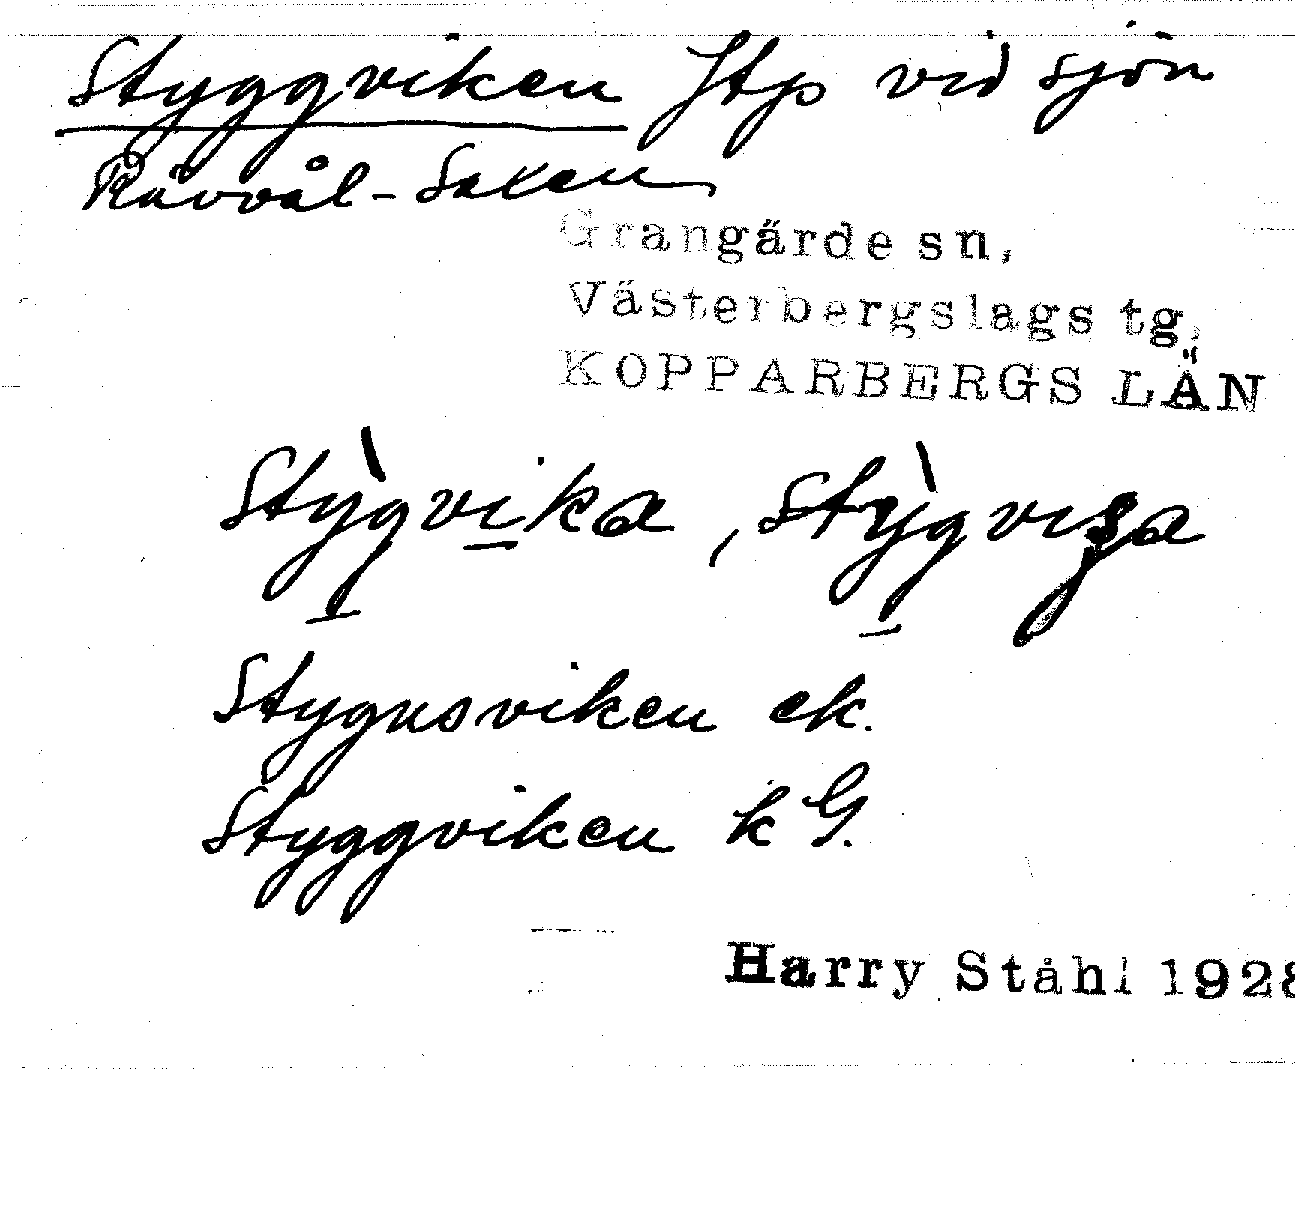 Styggviken ftp vid sjön
Råvvål-Saxen
Grangärde sn,
Västerbergslags tg,
KOPPARBERGS LÄN
Stỳgvika, stỳgviga
Stygnsviken ek.
Styggviken k G.
Harry Ståhl 1928